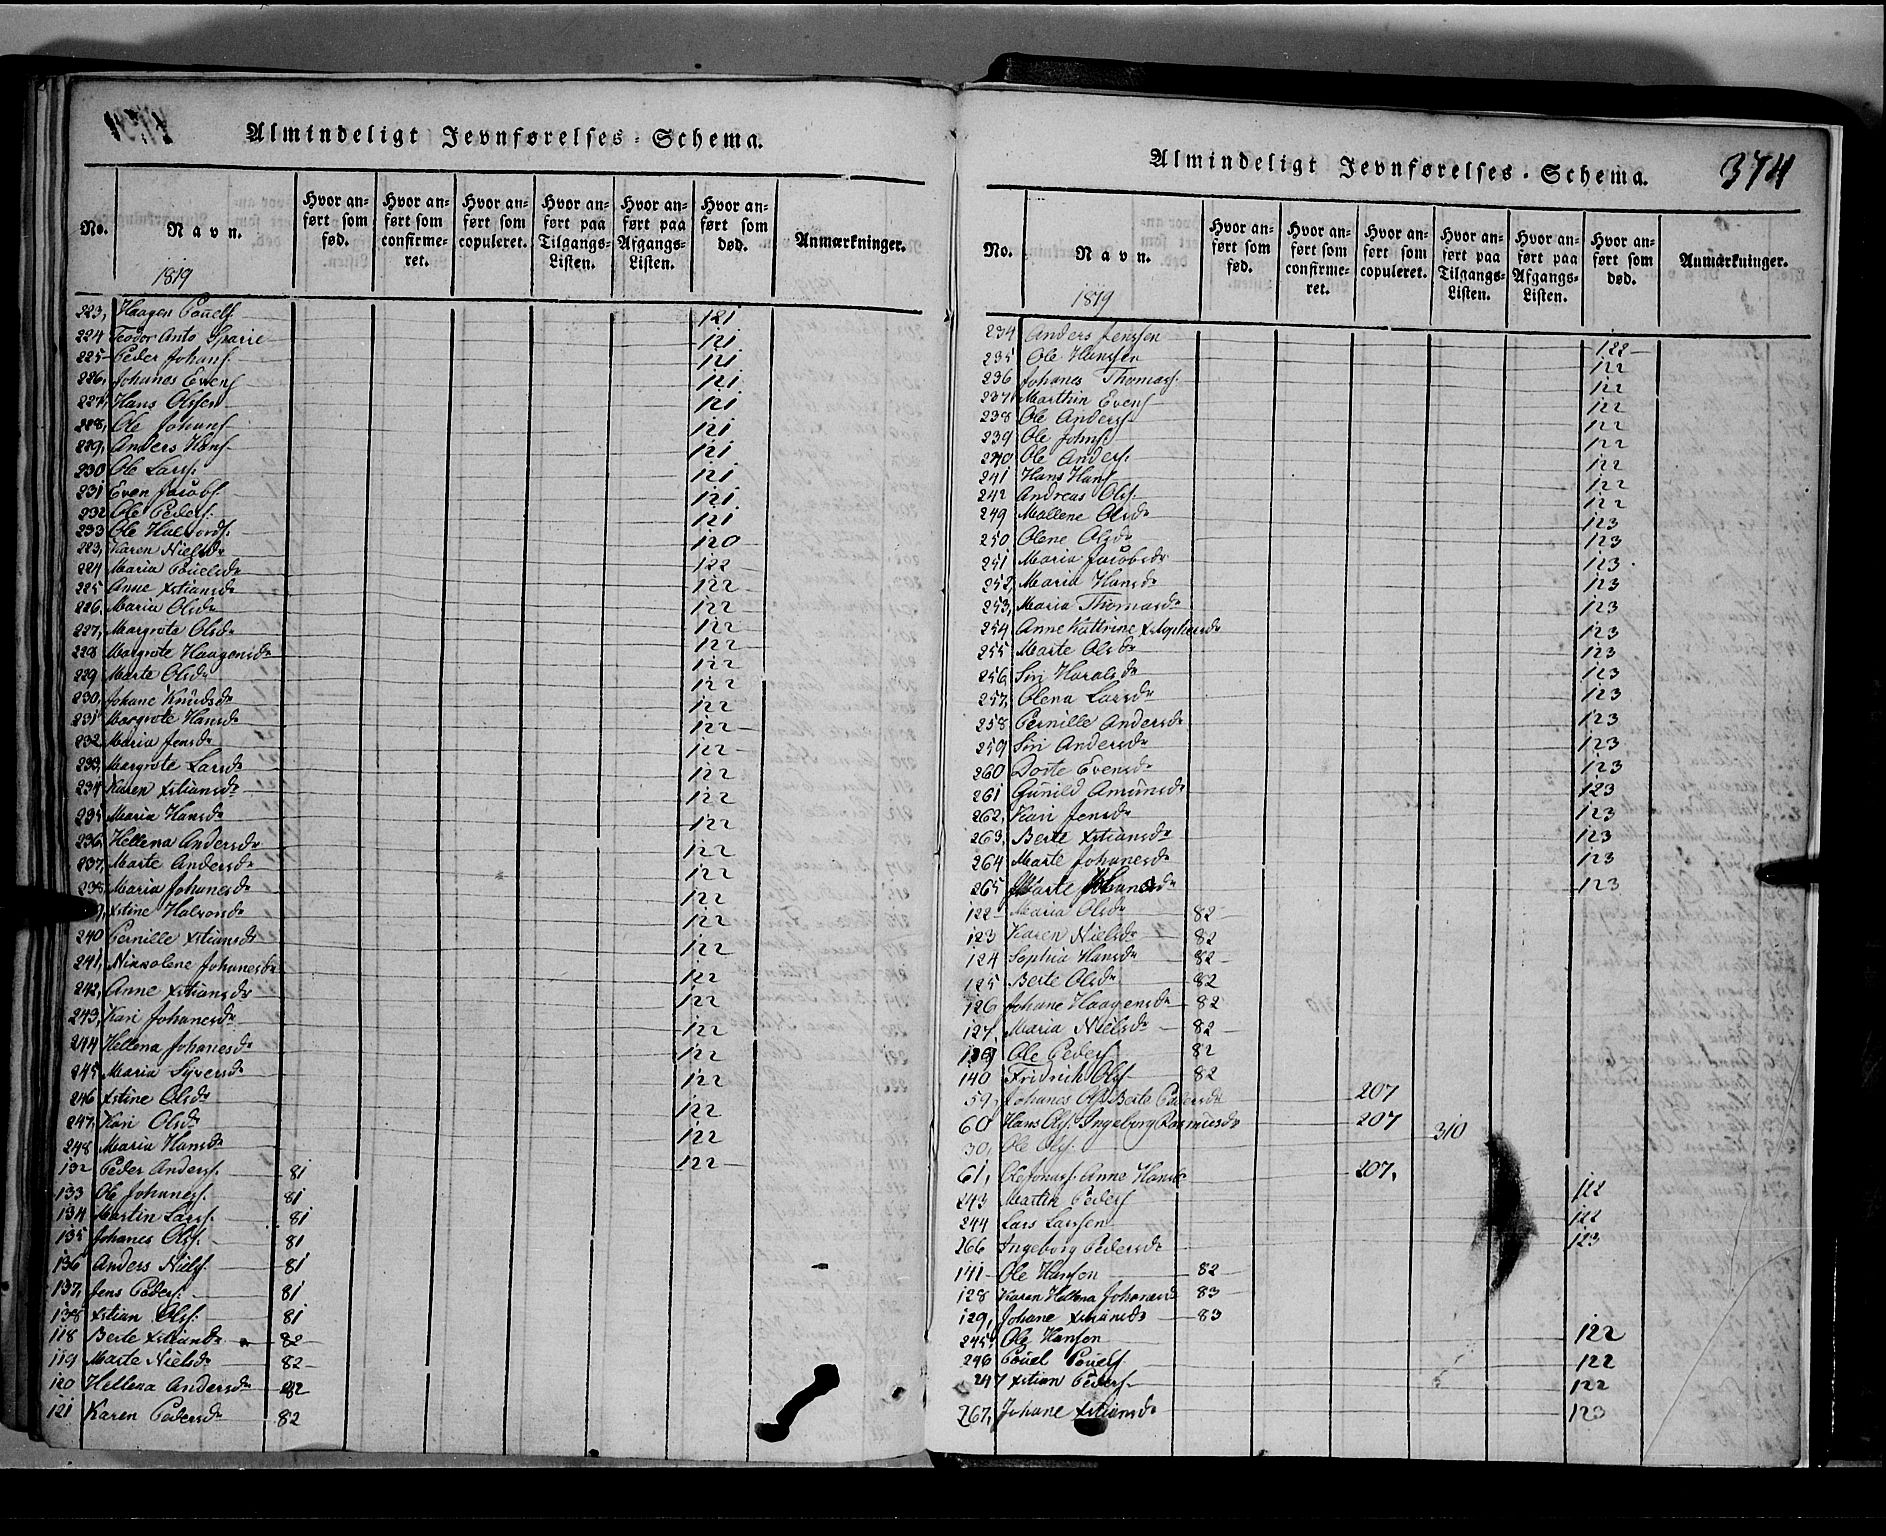 Almindeligt Jevnførelses-Schema.
No.
Navn.
Hvor anført som fød.
Hvor anført som confirmeret.
Hvor anført som copuleret.
Hvor anført paa Tilgangs-Listen.
Hvor anført paa Afgangs-Listen.
Hvor anført som død.
Anmærkninger.
1819
223, Haagen Pouels 121
224 Teodor Anto Sparie 121
225 Peder Johans 121
226, Johanes Evens 121
227, Hans Olsen 121
228, Ole Johans 121
229, Anders Hans 121
230 Ole Larss. 121
231 Even Jacobs. 121
232 Ole Peders. 121
233 Ole Halvords. 120
223, Karen Nielsdr 122
224 Maria Pouelsdr 122
225 Anne Xstiansdr 122
226, Maria Olsdr 122
227, Margrete Olsdr 122
228 Margrete Haagensdr 122
229 Marte Olsdr 122
230, Johane Knudsdr 122
231 Margrete Hansdr 122
232 Maria Jensdr 122
233, Margrete Larsdr 122
234 Karen Xstiansdr 122
235 Maria Hansdr 122
236, Hellena Andersdr 122
237, Marte Andersdr 122
238 Maria Johanesdr 122
Xstine Halvorsdr 122
240 Pernille Xstiansdr 122
241, Nikkolene Johanesdr 122
242, Anne Xstiansdr 122
243, Kari Johanesdr 122
244 Hellena Johanesdr 122
245 Maria Syversdr 122
246 Xstine Olsdr 122
247, Kari Olsdr 122
248 Maria Hansdr 122
132 Peder Anderss. 81
133 Ole Johaness. 81
134 Martin Larss. 81
135 Johanes Ols. 81
136 Anders Niels. 81
137, Jens Peders. 81
138 Xstian Ols. 81
118 Berte Xstiansdr 82
119 Marte Nielsdr 82
120 Hellena Andersdr 82
121 Karen Pedersdr 82
Almindeligt Jevnførelses-Schema.
374
No.
Navn.
Hvor anført som fød.
Hvor anført som confirmeret.
Hvor anført som copuleret.
Hvor anført paa Tilgangs-Listen.
Hvor anført paa Afgangs-Listen.
Hvor anført som død.
Anmærkninger.
1819
234 Anders Jenssen 122
235 Ole Hanssen 122
236 Johanes Thomass. 122
237 Marthin Evens 122
238 Ole Anders 122
239 Ole Johns. 122
240 Ole Anders. 122
241 Hans Hans 122
242 Andreas Ols. 122
249 Mallene Olsdr 123
250 Olene Olsdr 123
251 Maria Jacobsdr 123
252, Maria Hansdr 123
253, Maria Thomasdr 123
254 Anne Kattrine 123
255 Marte Olsdr 123
256, Siri Haralsdr 123
257, Olena Larsdr 123
258 Pernille Andersdr 123
259 Siri Andersdr 123
260 Dorte Evensdr 123
261 Gunild Amunsdr 123
262, Kari Jensdr 123
263, Berte Xstiansdr 123
264 Marte Johanesdr 123
265 Marte 123
122 Maria Olsdr 82
123 Karen Nielsdr 82
124 Sophia Hansdr 82
125 Berte Olsdr 82
126 Johane Haagensdr 82
127, Maria Nielsdr 82
139 Ole Peders 82
140 Fridrich Ols 82
59, Johanes Ols Berte Pedersdr 207
60 Hans Ols. Ingeborg Rasmusdr 207
30, Ole Ols. 310
61, Ole Jonass. Anne Hansdr 207,
243 Martin Peders 122
244 Lars Larssen 122
266 Ingeborg Pedersdr 123
141 Ole Hansen 82
128 Karen Hellena Johansdr 83
129, Johane Xstiansdr 83
245, Ole Hansen 122
246 Pouel Pouels 122
247 Xstian Peders. 122
267, Johane Xstiansdr 123